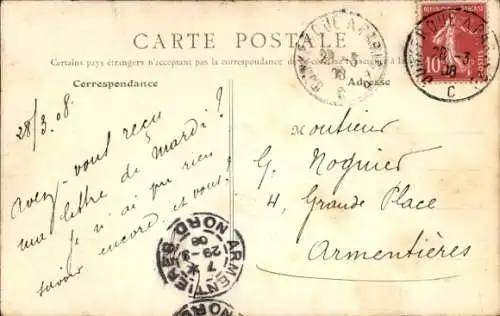 CARTE POSTALE
Certains pays étrangers n'acceptent pas la correspondance de ce côté
Correspondance
Adresse
28/3.08.
Avez-vous reçu
une lettre de mardi ?
Je n'ai pu rien
savoir encore, et vous ?
Monsieur
G. Noguier
4, Grande Place
Armentières
10
28 3
08
C
ARMENTIERES
NORD
7
29-3
08